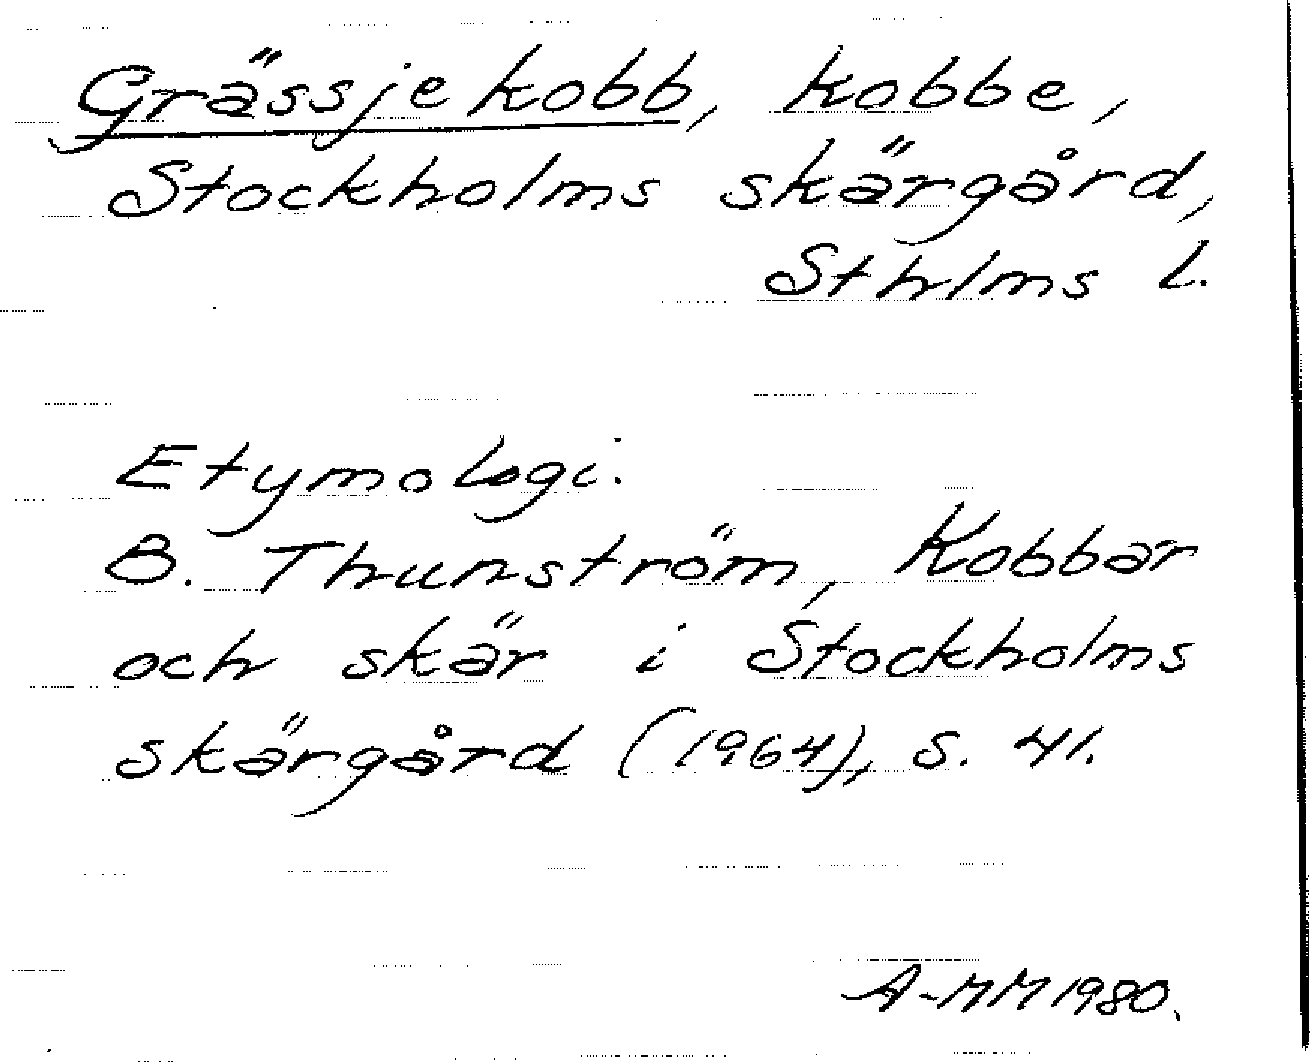 Grässjekobb, kobbe,
Stockholms skärgård,
Sthlms l.
Etymologi.
B. Thunström, Kobbar
och skär i Stockholms
skärgård (1964), s. 41.
A-MM 1980.